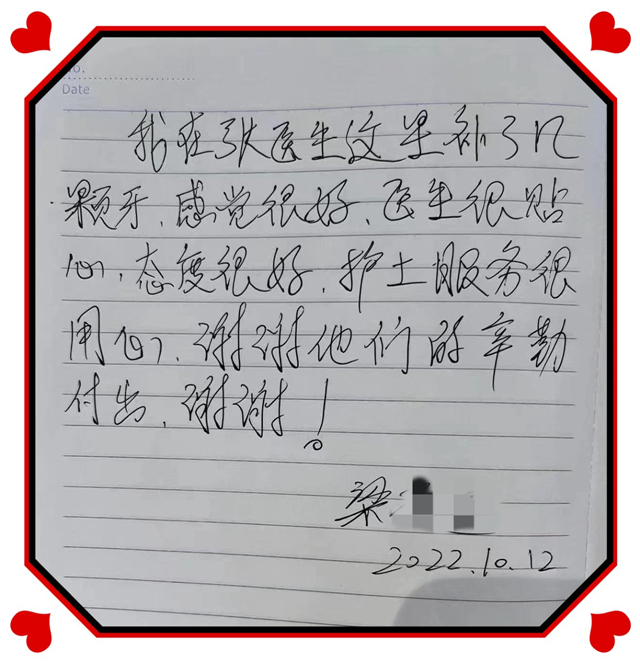 No.
Date
我在张医生这里补了几
颗牙,感觉很好,医生很贴
心,态度很好,护士服务很
用心,谢谢他们的辛勤
付出,谢谢!
梁
2022.10.12